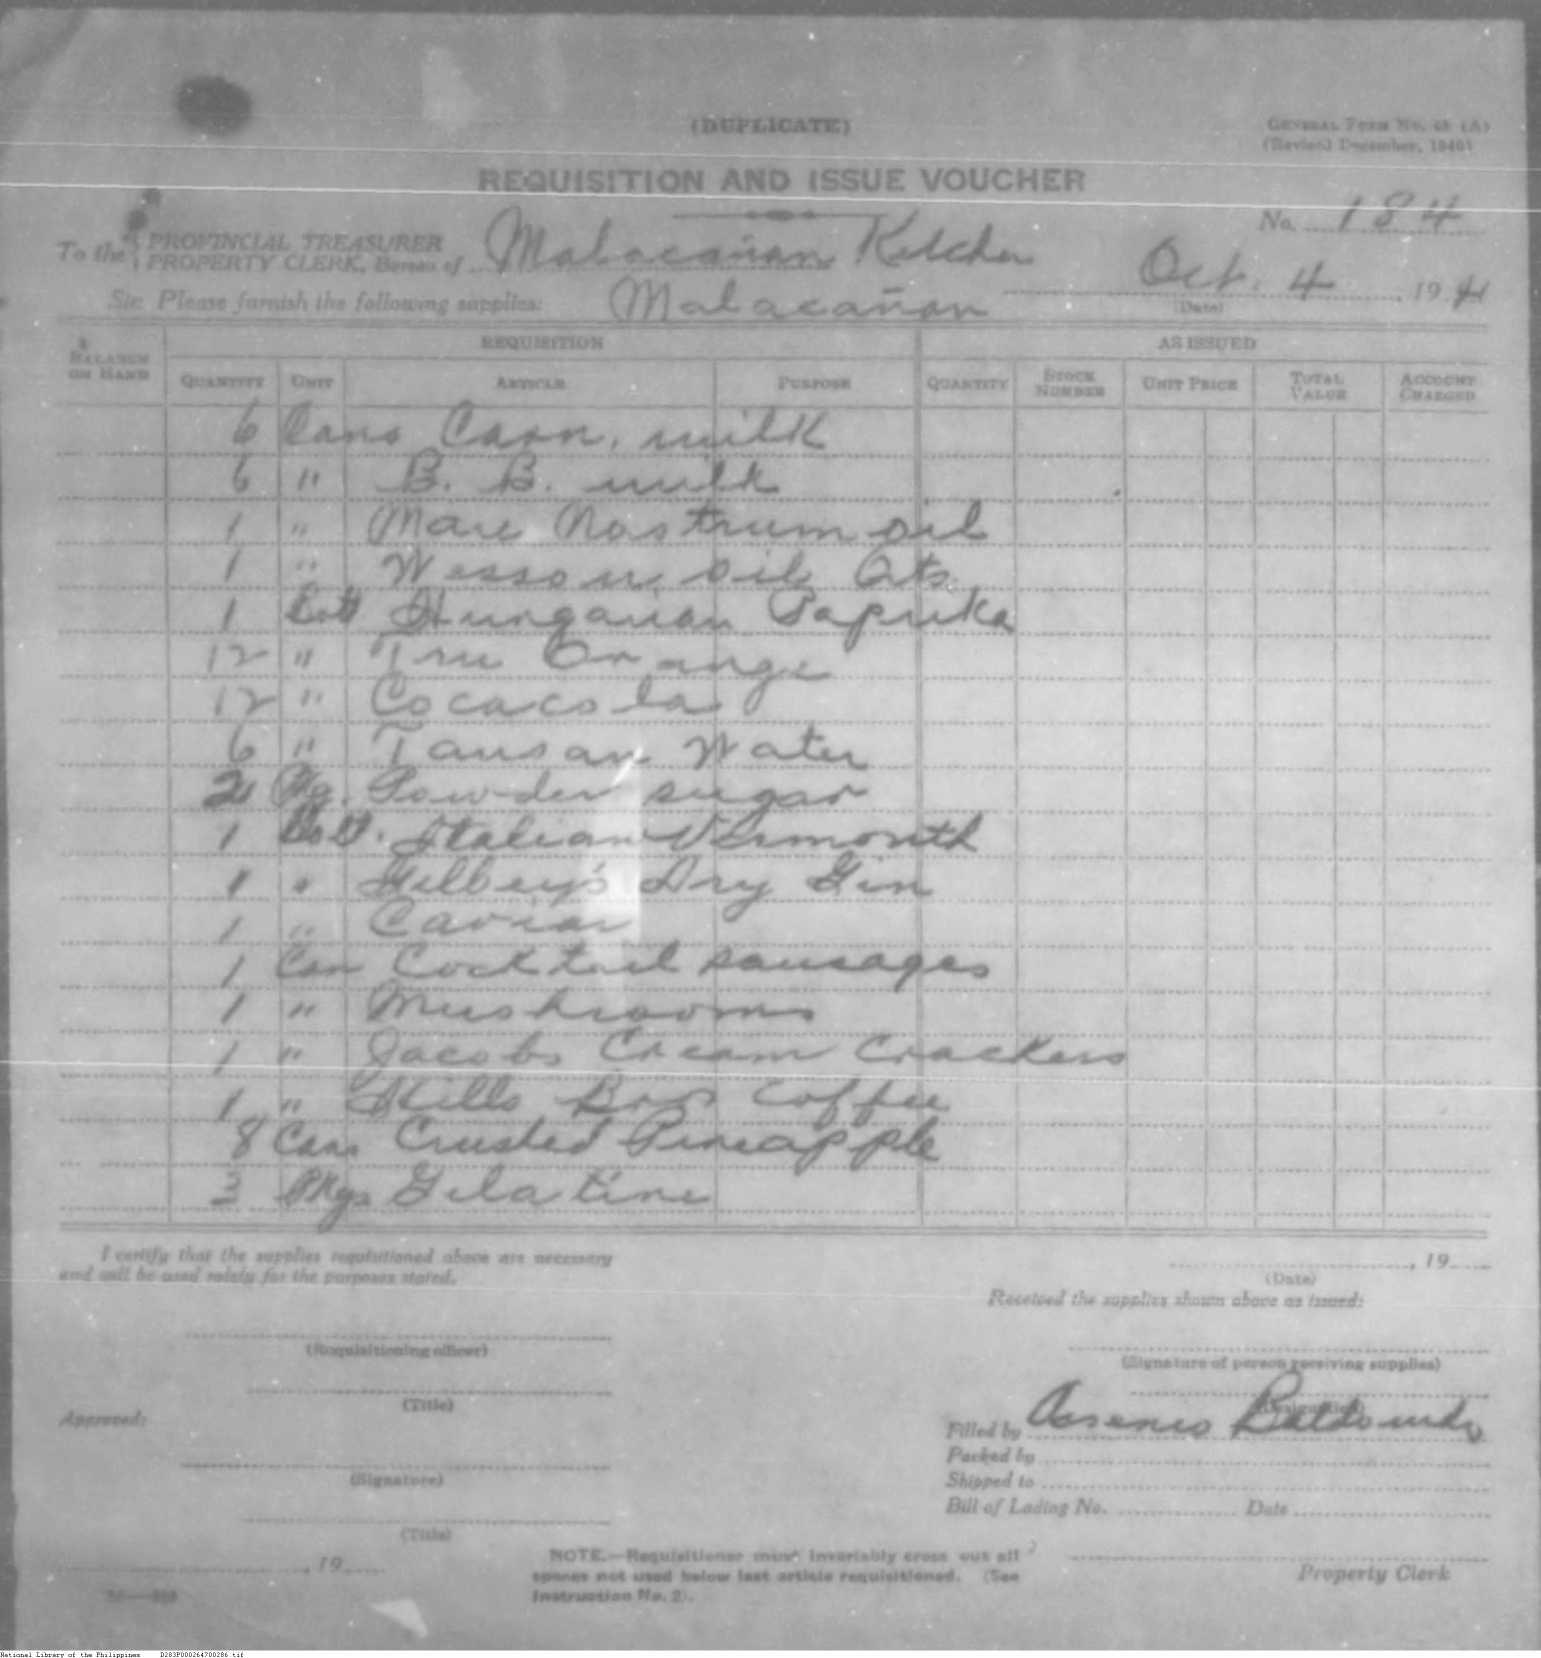 (DUPLICATE)
GENERAL FORM No. 45 (A)
(Revised December, 1940)
REQUISITION AND ISSUE VOUCHER
No. 184
To the PROVINCIAL TREASURER
PROPERTY CLERK, Bureau of Malacañan Kitchen
Oct. 4, 1941
(Date)
Sir: Please furnish the following supplies: Malacañan
BALANCE ON HAND REQUISITION AS ISSUED
QUANTITY UNIT ARTICLE PURPOSE QUANTITY STOCK NUMBER UNIT PRICE TOTAL VALUE ACCOUNT CHARGED
6 Cans Carn. milk
6 " B. B. milk
1 " Mare Nostrum oil
1 " Wesson oil Qts.
1 Bott Hungarian Paprika
12 " Tru Orange
12 " Cocacola
6 " Tansan Water
2 Pkg. Powder sugar
1 Bott. Italian Vermouth
1 " Gilbey's Dry Gin
1 " Caviar
1 Can Cocktail sausages
1 " Mushrooms
1 " Jacobs Cream Crackers
1 " Hills Bros Coffee
8 Cans Crushed Pineapple
3 Pkgs Gelatine
I certify that the supplies requisitioned above are necessary
and will be used solely for the purposes stated.
, 19
(Date)
Received the supplies shown above as issued:
(Requisitioning officer)
(Signature of person receiving supplies)
(Title)
(Designation)
Approved:
Filled by Arsenio
Packed by
(Signature)
Shipped to
Bill of Lading No. Date
(Title)
, 19
NOTE.—Requisitioner must invariably cross out all
spaces not used below last article requisitioned. (See
Instruction No. 2).
Property Clerk
National Library of the Philippines D283P000264700286.tif